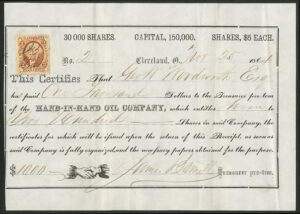 30 000 SHARES. CAPITAL, 150,000. SHARES, $5 EACH.
No. 2 Cleveland, O. Nov 25 1864
This Certifies That Geo W Woodworth Esq
has paid One Thousand Dollars to the Treasurer protem
of the HAND-IN-HAND OIL COMPANY, which entitles him
to Two Hundred Shares in said Company, the
certificates for which will be issued upon the return of this Receipt, as soon as
said Company is fully organized, and the necessary papers obtained for the purpose.
$1000 James TREASURER pro-tem.